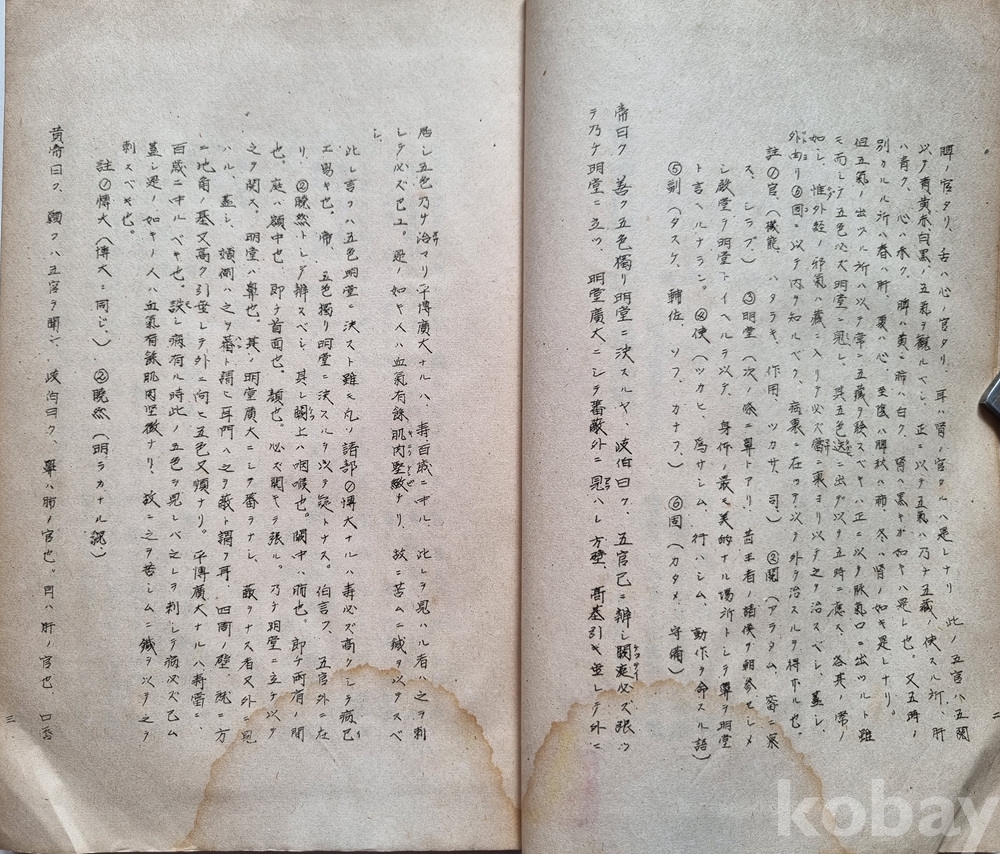 脾ノ官タリ、舌ハ心ノ官タリ、耳ハ腎ノ官タルハ是レナリ 此ノ五官ハ五閲
以テ青黄赤白黒ノ五氣ヲ観ルベシ、正ニ以テ五氣ハ乃チ五藏ノ使スル所、肝
ハ青ク、心ハ赤ク、脾ハ黄ニ肺ハ白ク、腎ハ黒キガ如キハ是レ也、又五時ノ
別カルル所ハ春ハ肝、夏ハ心、至陰ハ脾秋ハ肺、冬ハ腎ノ如キ是レナリ。
但五氣ノ出ヅル所ハ以テ常ニ五藏ヲ
ミ而シテ五色必ズ明堂ニ見レ、其五色 ニ出デ以テ五時ニ應ズ、各其ノ常ノ
如シ、惟外經ノ邪氣ハ藏ニ入リテ必ズ 裏ヨリ以テ之ヲ治スベシ、蓋シ、
外由リ⑥固、以テ内ヲ知ルベク、病裏ニ在ッテハ以テ外ヲ治スルヲ得ホル也、
註①官(機能、ハタラキ、作用、ツカサ、司) ②閲(アラタム、
ス、シラブ、) ③明堂(次ノ條ニ鼻トアリ、昔王者ノ諸侯ヲ朝参セシメ
シ殿堂ヲ明堂トイヘルヲ以テ、身体ノ最モ美的ナル場所トシテ鼻ヲ明堂
ト言ヘルナラン。 ④使(ツカヒ、爲サシム、行ハシム、動作ヲ命スル語)
⑤副(タスケ、輔佐 ソフ、カナフ、) ⑥固(カタメ、守備)
帝曰ク 善ク五色獨リ明堂ニ決スルヤ、岐伯曰ク、五官已ニ辨シ闕庭必ズ張ッ
テ乃チ明堂ニ立ツ、明堂廣大ニシテ蕃蔽外ニ見ハレ方壁、高基引キ垂レテ外ニ
二
居シ五色乃チ治マリ平博廣大ナルハ、壽百歳ニ中ル、此レヲ見ハル者ハ之ヲ刺
シテ必ズ已ユ。是ノ如キ人ハ血氣有餘肌肉堅緻ナリ、故ニ苦ムニ鍼ヲ以ウスベ
シ、
此レ言フハ五色明堂ニ決スト雖モ凡ソ諸部ノ①博大ナルハ壽必ズ高クシテ病已
エ易キ也。帝、五色獨リ明堂ニ決スルヲ以テ疑トナス。伯言フ、五官外ニ在
リ、②晩然トシテ辨スベシ、其レ闕上ハ咽喉也。闕中ハ肺也。即チ両眉ノ間
也。庭ハ顔中也 即チ首面也。顔也。必ズ開キ張ル。乃チ明堂ニ立テ以テ
之ヲ閲ス。明堂ハ鼻也。其ノ明堂廣大ニシテ蕃ヲナシ、蔽ヲナス者又外ニ見
ハル、蓋シ、頰側ハ之ヲ蕃ト謂ヒ耳門ハ之ヲ蔽ト謂フ耳、四周ノ壁、既ニ方
ニ地角ノ基又高ク引垂レテ外ニ向ヒ五色又順ナリ。平博廣大ナルハ将當ニ、
百歳ニ中ルベキ也。 シ病有ル時此ノ五色ヲ見レバ之レヲ刺シテ病必ズ已ム
蓋シ是ノ如キノ人ハ血氣有餘肌肉堅緻ナリ、故ニ之ヲ苦シムニ鍼ヲ以テ之ヲ
刺スベキ也。
註①博大(博大ニ同ジ、) ②晩然(明ラカナル貌)
黄帝曰ク、願クハ五官ヲ聞カン、岐伯曰ク、鼻ハ肺ノ官也。目ハ肝ノ官也 口唇ハ
三
kobay